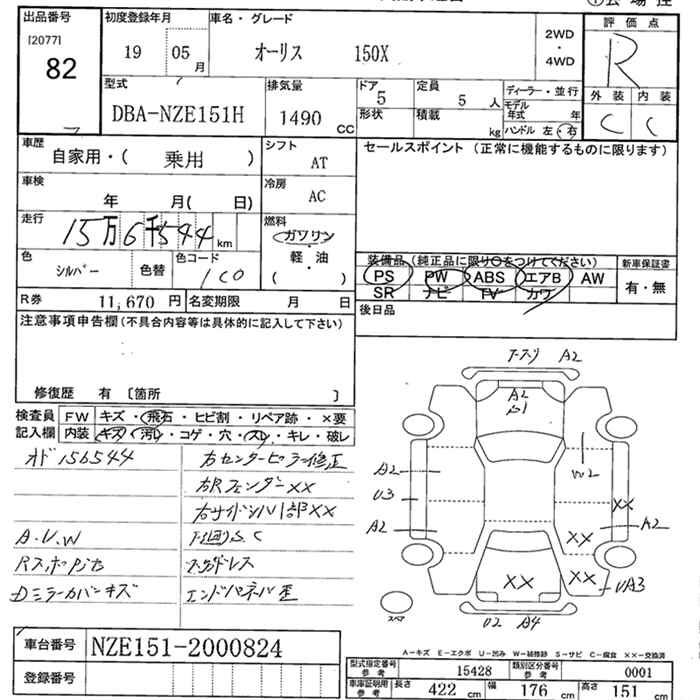 出品番号
[2077]
82
初度登録年月
19 05
月
車名・グレード
オーリス 150X
2WD
・
4WD
評価点
R
外装 内装
C C
型式
DBA-NZE151H
排気量
1490
CC
ドア
5
形状
定員
5 人
積載
kg
ディーラー・並行
モデル
年式 年
ハンドル 左・右
車歴
自家用・( 乗用 )
シフト
AT
車検
年 月( 日)
冷房
AC
走行
15万6千544 km
燃料
ガソリン
・
軽・油
・
( )
色
シルバー
色替
色コード
1C0
R券 11,670 円
名変期限 月 日
セールスポイント (正常に機能するものに限ります)
装備品(純正品に限り○をつけてください)
PS PW ABS エアB AW
SR ナビ TV カワ
新車保証書
有・無
後日品
注意事項申告欄(不具合内容等は具体的に記入して下さい)
修復歴 有 〔箇所 〕
検査員
記入欄
FW キズ・飛石・ヒビ割・リペア跡・×要
内装 キズ・汚レ・コゲ・穴・スレ・キレ・破レ
オド156544
右センターピラー修正
右Rフェンダー××
A.U.W
下回りS.C
スタッドレス
Dミラーカバーキズ
エンドパネル歪
A2
A2
S1
A2
U3
A2
W2
××
A2
××
××
UA3
××
U2 A4
スペア
A-キズ E-エクボ U-凹み W-補修跡 S-サビ C-腐食 ××-交換済
車台番号 NZE151-2000824
登録番号
型式指定番号
参考
15428
類別区分番号
参考
0001
車庫証明用
参考
長さ 422 cm
幅 176 cm
高さ 151 cm